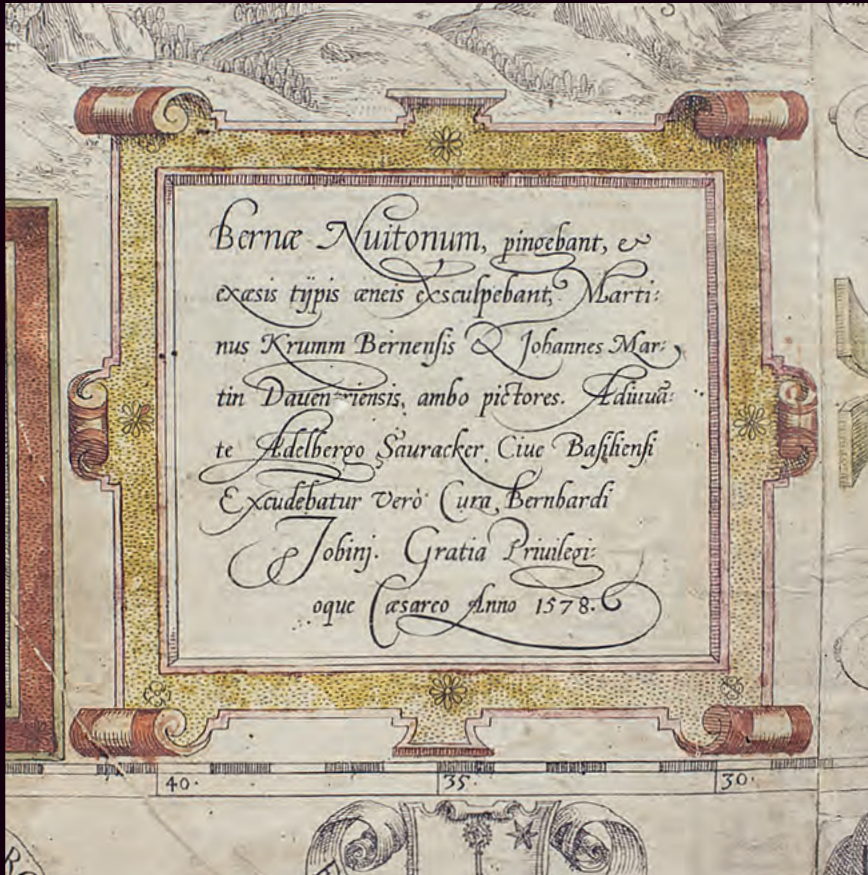 Bernæ Nuitonum, pingebant, &
exæsis tÿpis æneis exsculpebant, Marti:
nus Krumm Bernensis & Johannes Mar:
tin Dauentriensis, ambo pictores. Adiuuā:
te Adelbergo Sauracker Ciue Basiliensi
Excudebatur verò Cura Bernhardi
Jobinj. Gratia Priuilegi:
oque Cæsareo Anno 1578.
40. 35. 30.